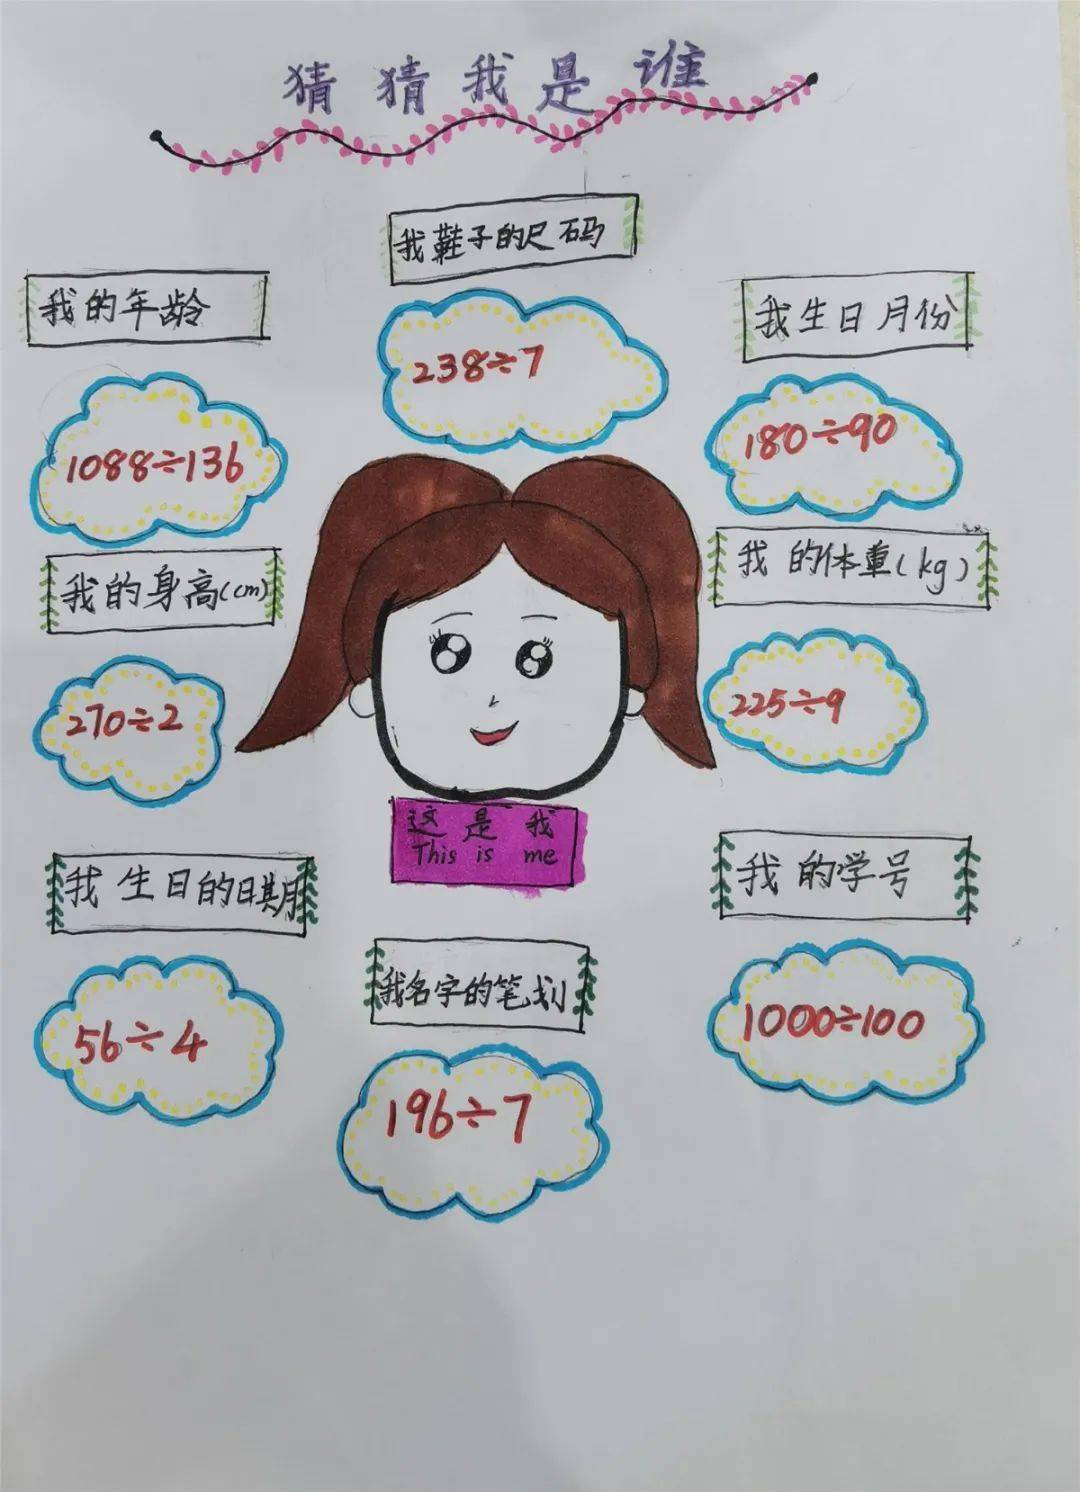 猜猜我是谁
我鞋子的尺码
238÷7
我的年龄
1088÷136
我生日月份
180÷90
我的身高(cm)
270÷2
我的体重(kg)
225÷9
这是我
This is me
我生日的日期
56÷4
我名字的笔划
196÷7
我的学号
1000÷100